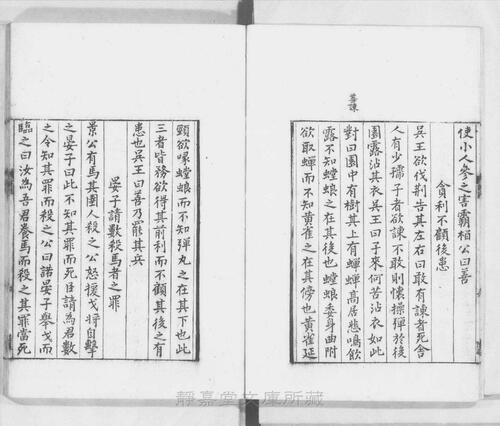 善諫
使小人參之害霸桓公曰善
貪利不顧後患
吳王欲伐荆告其左右曰敢有諫者死舍
人有少孺子者欲諫不敢則懷操彈於後
園露沾其衣吳王曰子來何苦沾衣如此
對曰園中有樹其上有蟬蟬高居悲鳴飲
露不知螳螂之在其後也螳螂委身曲附
欲取蟬而不知黃雀之在其傍也黃雀延
頸欲啄螳螂而不知彈丸之在其下也此
三者皆務欲得其前利而不顧其後之有
患也吳王曰善乃罷其兵
晏子請數殺馬者之罪
景公有馬其圉人殺之公怒援戈將自擊
之晏子曰此不知其罪而死臣請為君數
之令知其罪而殺之公曰諾晏子舉戈而
臨之曰汝為吾君養馬而殺之其罪當死
靜嘉堂文庫所藏